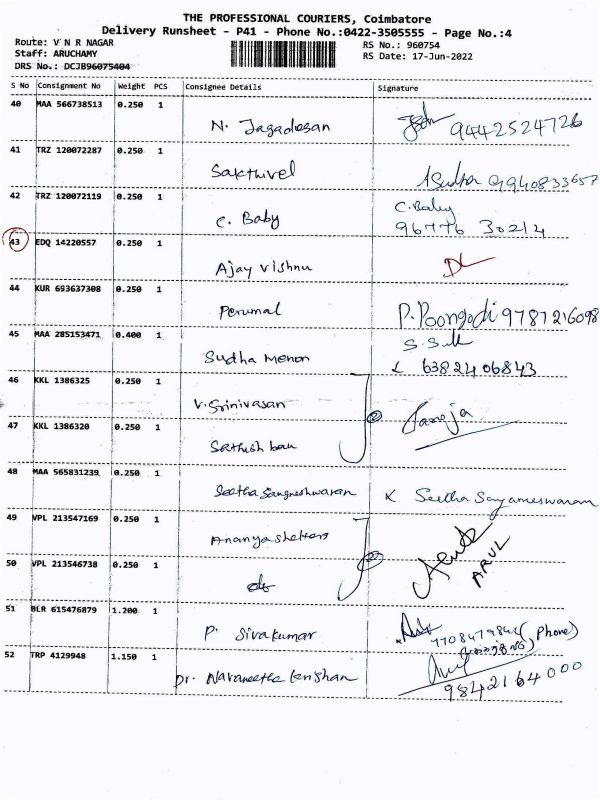 THE PROFESSIONAL COURIERS, Coimbatore
Delivery Runsheet - P41 - Phone No.:0422-3505555 - Page No.:4
Route: V N R NAGAR RS No.: 960754
Staff: ARUCHAMY RS Date: 17-Jun-2022
DRS No.: DCJB96075404
S No Consignment No Weight PCS Consignee Details Signature
40 MAA 566738513 0.250 1 N. Jagadesan 9442524726
41 TRZ 120072287 0.250 1 Sakthivel
42 TRZ 120072119 0.250 1 C. Baby C. Baby
96776 30214
43 EDQ 14220557 0.250 1 Ajay Vishnu DL
44 KUR 693637308 0.250 1 Perumal P. Poongodi 9787216098
45 MAA 285153471 0.400 1 Sudha Menon
6382406843
46 KKL 1386325 0.250 1 V. Srinivasan
47 KKL 1386320 0.250 1
48 MAA 565831239 0.250 1 Seetha
49 VPL 213547169 0.250 1 Ananya Shelters
ARUL
50 VPL 213546738 0.250 1 do
51 BLR 615476879 1.200 1 P. Sivakumar
(Phone)
52 TRP 4129948 1.150 1 Dr. Navaneetha Krishnan
9842164000